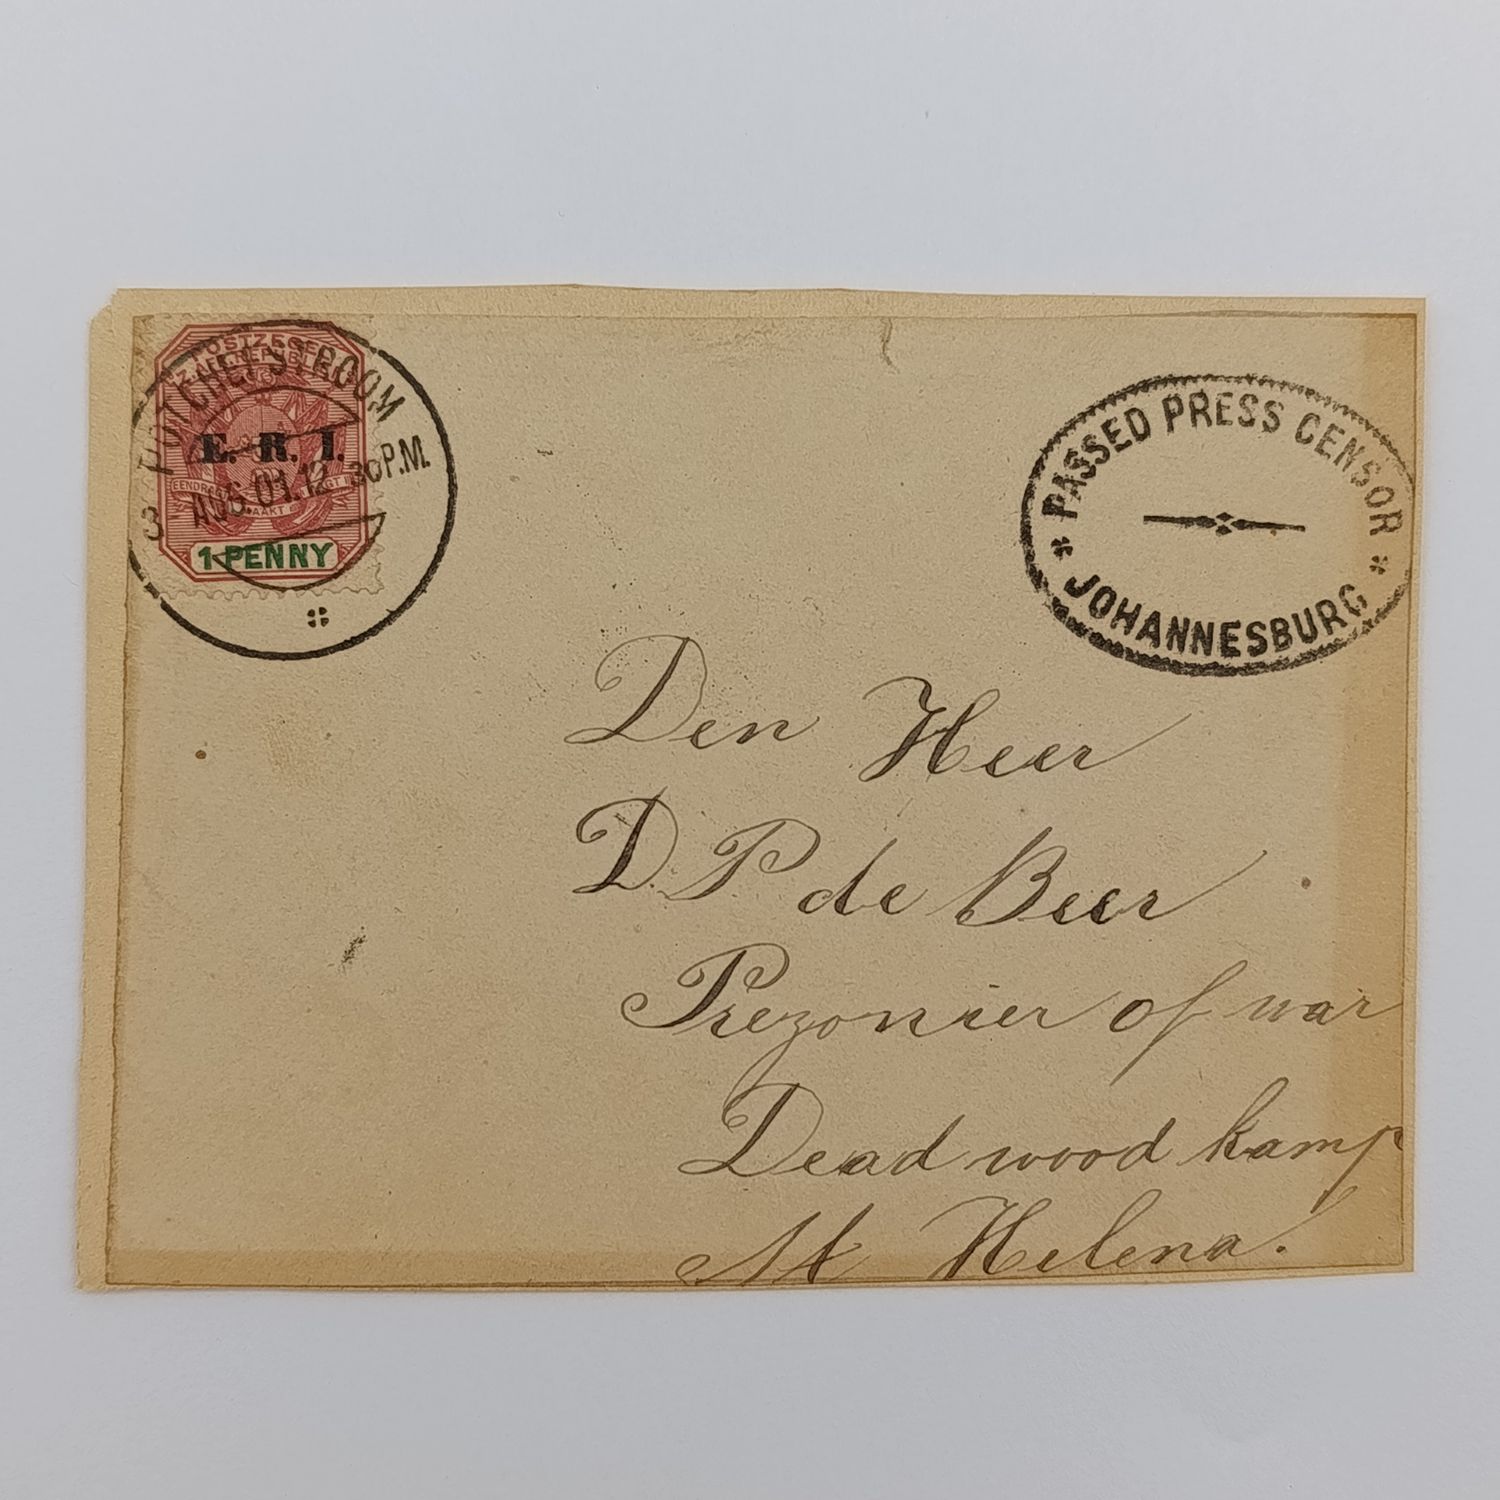 POSTZEGEL
Z. AFR. REPUBLIEK
E. R. I.
EENDRAGT MAAKT MAGT
1 PENNY
POTCHEFSTROOM
3 AUG. 01. 12 30 P.M.
PASSED PRESS CENSOR
JOHANNESBURG
Den Heer
D. P de Beer
Prezonier of war
Dead wood kamp
St Helena.